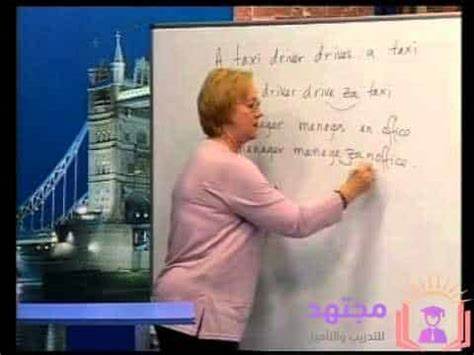 A taxi driver drives a taxi
driver drive za taxi
manages an office
manager manage zanoffice.
مجتهد
للتدريب والتأهيل